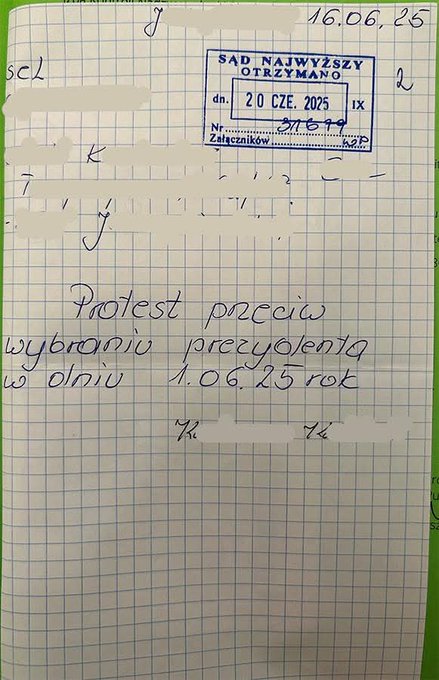 J 16.06.25
SĄD NAJWYŻSZY
OTRZYMANO
dn. 20 CZE. 2025 IX
Nr
Załączników
2
K
T
J
Protest przeciw
wybraniu prezydenta
w dniu 1.06.25 rok